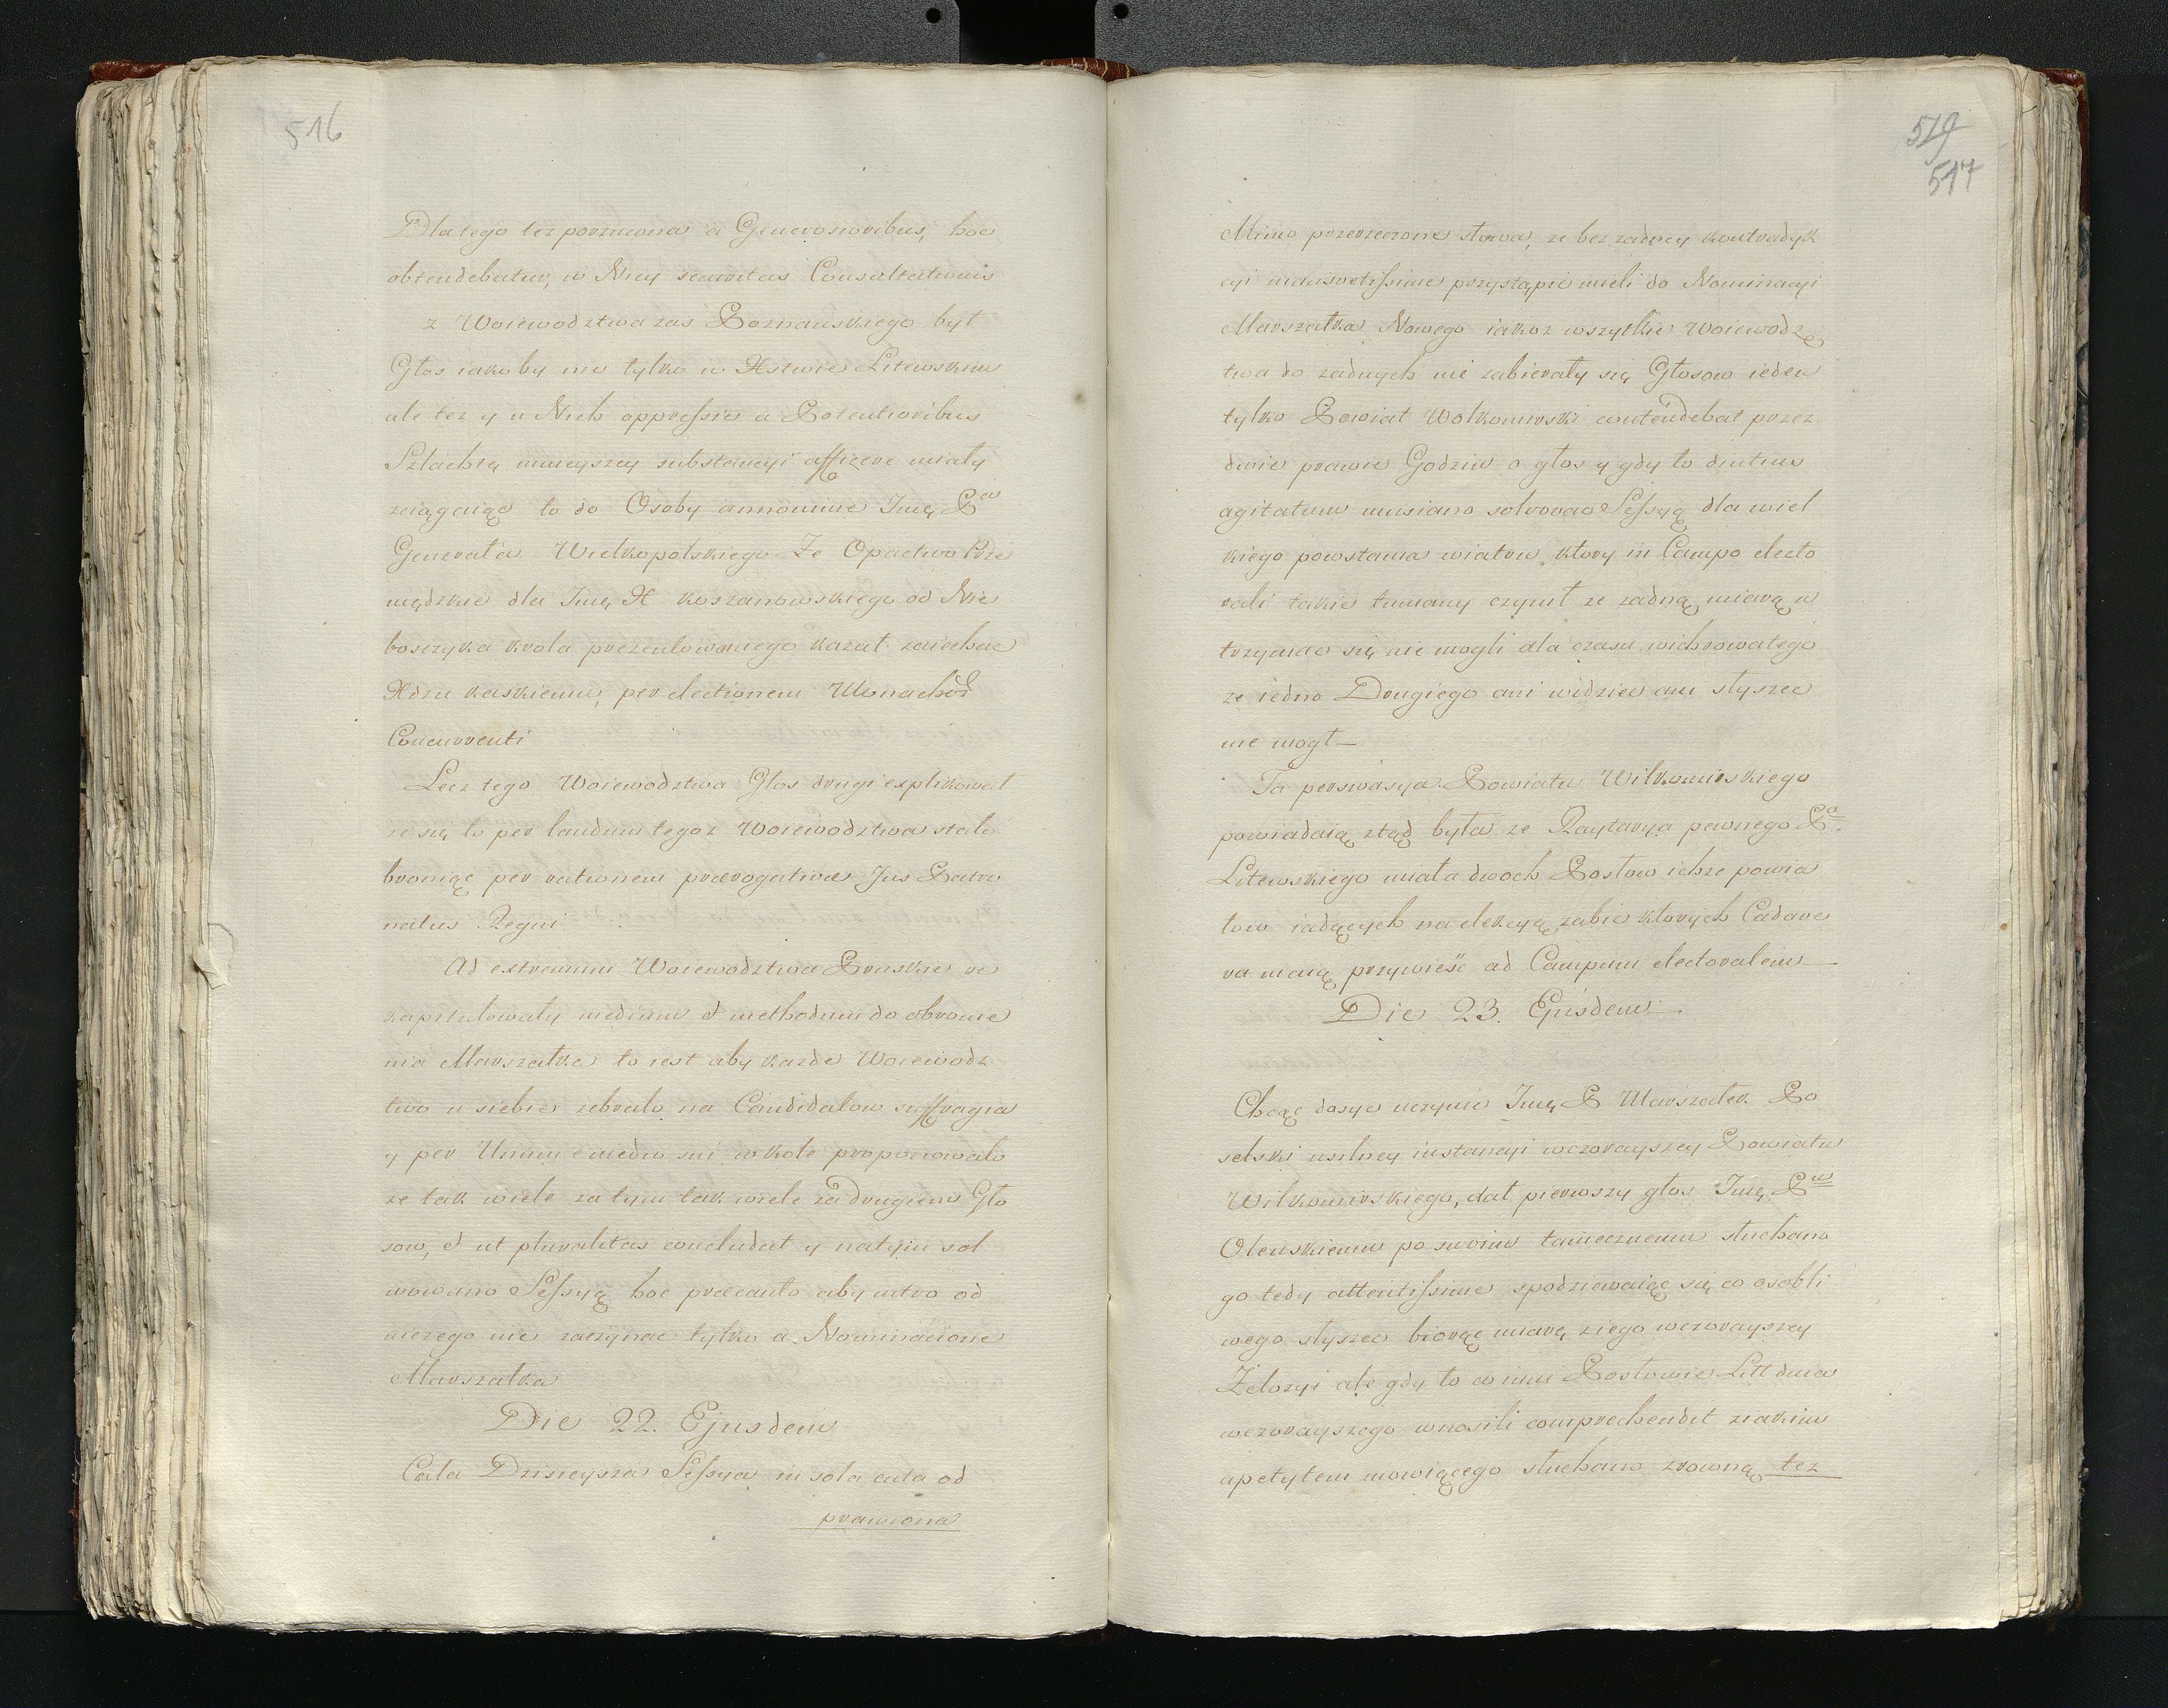 516
Dla tego tez porzucona a Generosioribus, hoc
obtendebatur, w Niey securitas Consultationis
z Woiewodztwa zas Poznanskiego był
Głos iakoby nie tylko w Xstwie Litewskim
ale tez y u Nich oppressie a Potentioribus
Szlachtę mnieyszey substancyi afficere miały
zciągaiąc to do Osoby annonime Jmę Pa
Generała Wielkopolskiego Ze Opactwo Prze
mędzkie dla Jmę X Koszanowskiego od Nie
boszczyka krola prezentowanego kazał zaiechac
Xdzu kaskiemu, per electionem Monachor
Concurrenti
Lecz tego Woiewodztwa Głos drugi explikował
ze się to per laudum tegoz Woiewodztwa stało
broniąc per rationem prærogativæ Jus Patro
natus Regni
Ad extremum Woiewodztwa Pruskie re
kapitulowały medium et methodum do obranie
nia Marszałka to iest aby kazde Woiewodz
two u siebie zebrało na Candidatow suffragia
y per Unum e medio sui w kole proponowało
ze tak wiele za tym tak wiele za drugiem Gło
sow, et ut pluralitas concludat y natym sol
wowano Sessyą hoc præcauto aby iutro od
niczego nie zaczynac tylko a Nominatione
Marszałka
Die 22. Ejusdem
Cała Dzisieysza Sessya in sola cuta od
prawiona
519
517
Mimo przerzeczone słowa, ze bez zadney kontradyk
cyi mansvetissime przystąpic mieli do Nominacyi
Marszałka Nowego iakoz wszytkie Woiewodz
twa do zadnych nie zabierały się Głosow ieden
tylko Powiat Wołkomirski contendebat przez
dwie prawie Godzin o głos y gdy to diutius
agitatum musiano solvovac Sessyą dla wiel
kiego powstania wiatru, ktory in Campo electo
rali takie tumany czynił ze zadną miarą u
trzymac się nie mogli dla czasu wichrowatego
ze iedno Drugiego ani widziec ani słyszec
nie mogł
Ta perswasya Powiatu Wilkomirskiego
powiadaią ztąd była ze Raytarya pewnego Pa
Litewskiego miała dwoch Posłow ichze powia
tow iadących na elekcyą, zabic ktorych Cadave
ra maią przywieść ad Campum electoralem
Die 23. Ejusdem
Chcąc dosyc uczynic Jmę P Marszałek Po
selski usilney instancyi wczorayszey Powiatu
Wilkomirskiego, dał pierwszy głos Jmę Pu
Olenskiemu po swoim tamecznemu słuchano
go tedy attentissime spodziewaiąc się co osobli
wego słyszec biorąc miarę ziego wczorayszey
Żelozyi ale gdy to co inni Posłowie Litt dnia
wczorayszego wnosili comprehendit ziakim
apetytem mowiącego słuchano zrowną tez